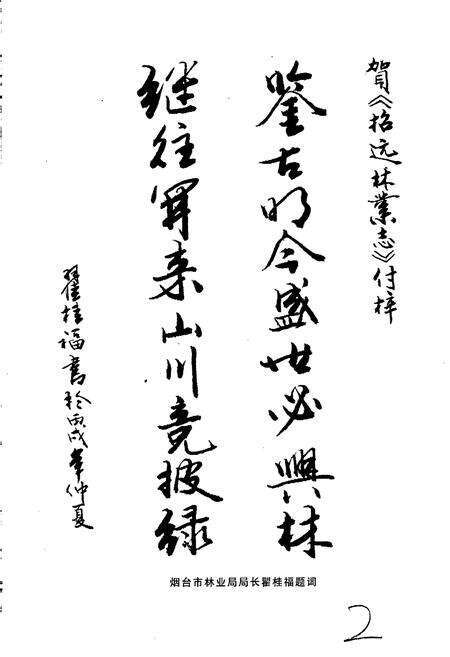 贺《招远林業志》付梓
鉴古明今盛世必興林
继往開来山川竞披绿
翟桂福書於丙戌年仲夏
烟台市林业局局长瞿桂福题词
2